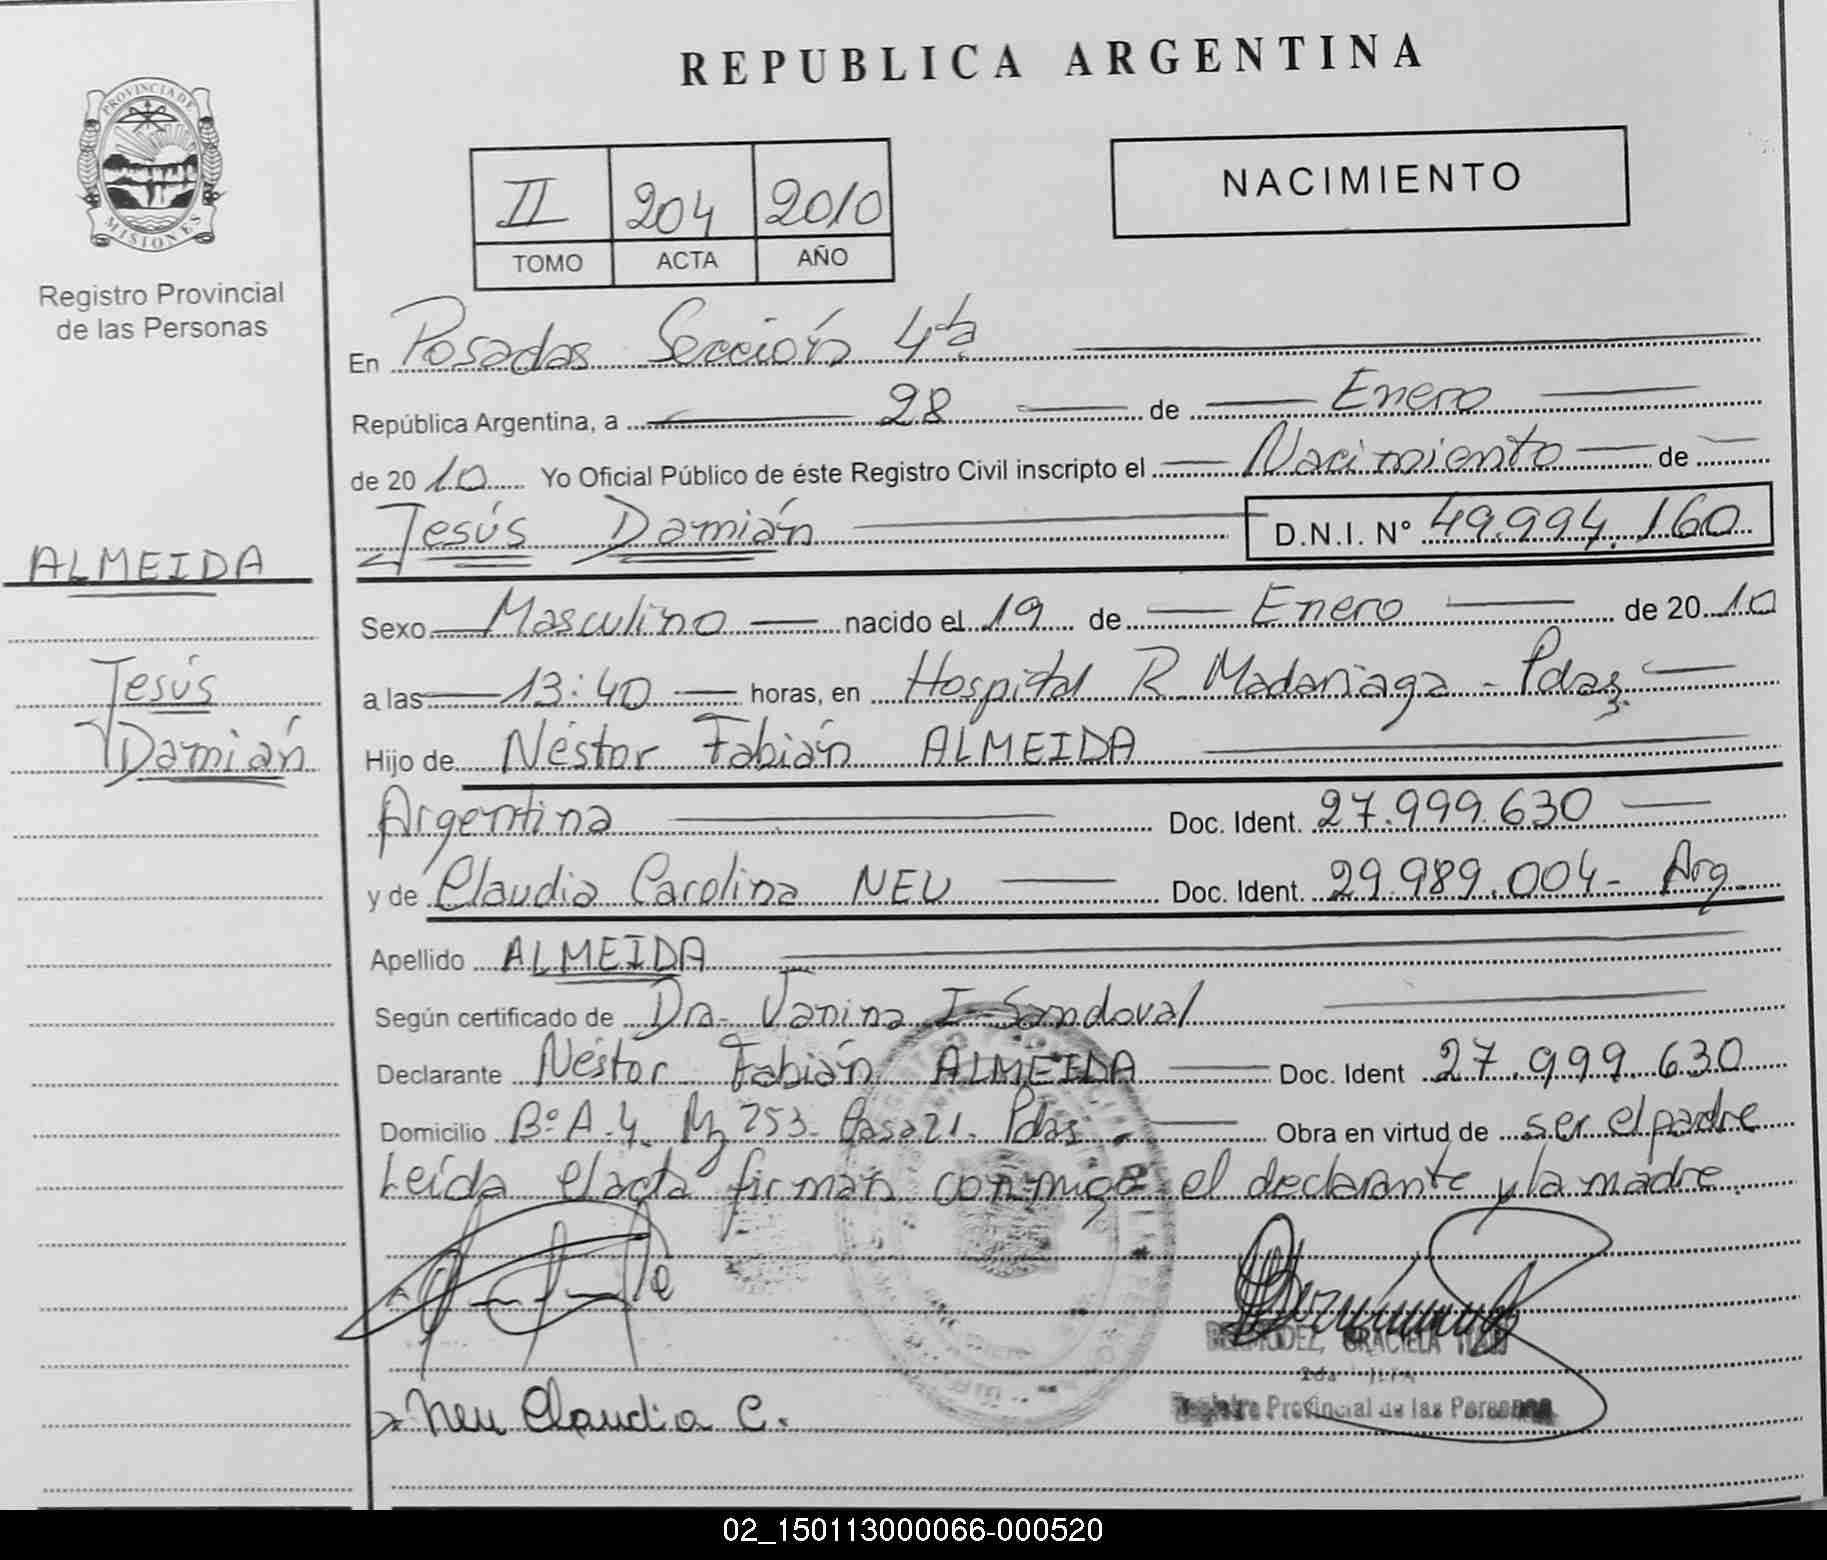 REPUBLICA ARGENTINA
PROVINCIA DE
MISIONES
Registro Provincial
de las Personas
II 204 2010
TOMO ACTA AÑO
NACIMIENTO
En Posadas Sección 4ta
República Argentina, a 28 de Enero
de 2010 Yo Oficial Público de éste Registro Civil inscripto el Nacimiento de
Jesús Damián D.N.I. N° 49.994.160
ALMEIDA
Jesús
Damián
Sexo Masculino nacido el 19 de Enero de 2010
a las 13:40 horas, en Hospital R. Madariaga - Pdas.
Hijo de Néstor Fabián ALMEIDA
Argentina Doc. Ident. 27.999.630
y de Claudia Carolina NEU Doc. Ident. 29.989.004- Arg.
Apellido ALMEIDA
Según certificado de Dra. Janina I. Sandoval
Declarante Néstor Fabián ALMEIDA Doc. Ident 27.999.630
Domicilio B° A-4. Mz 253- Casa 21. Pdas. Obra en virtud de ser el padre
Leída el acta firman conmigo el declarante y la madre.
BERMUDEZ, GRACIELA
Neu Claudia C.
Registro Provincial de las Personas
02_150113000066-000520